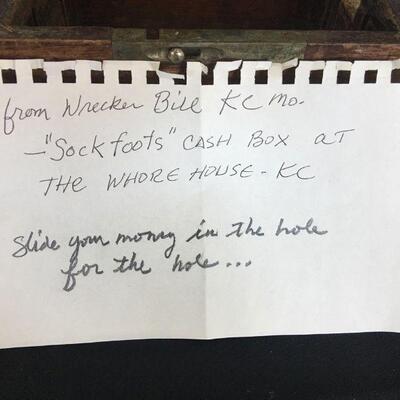 from Wrecker Bill KC Mo.
—"Sockfoots" CASH BOX AT
THE WHORE HOUSE - KC
Slide your money in the hole
for the hole...